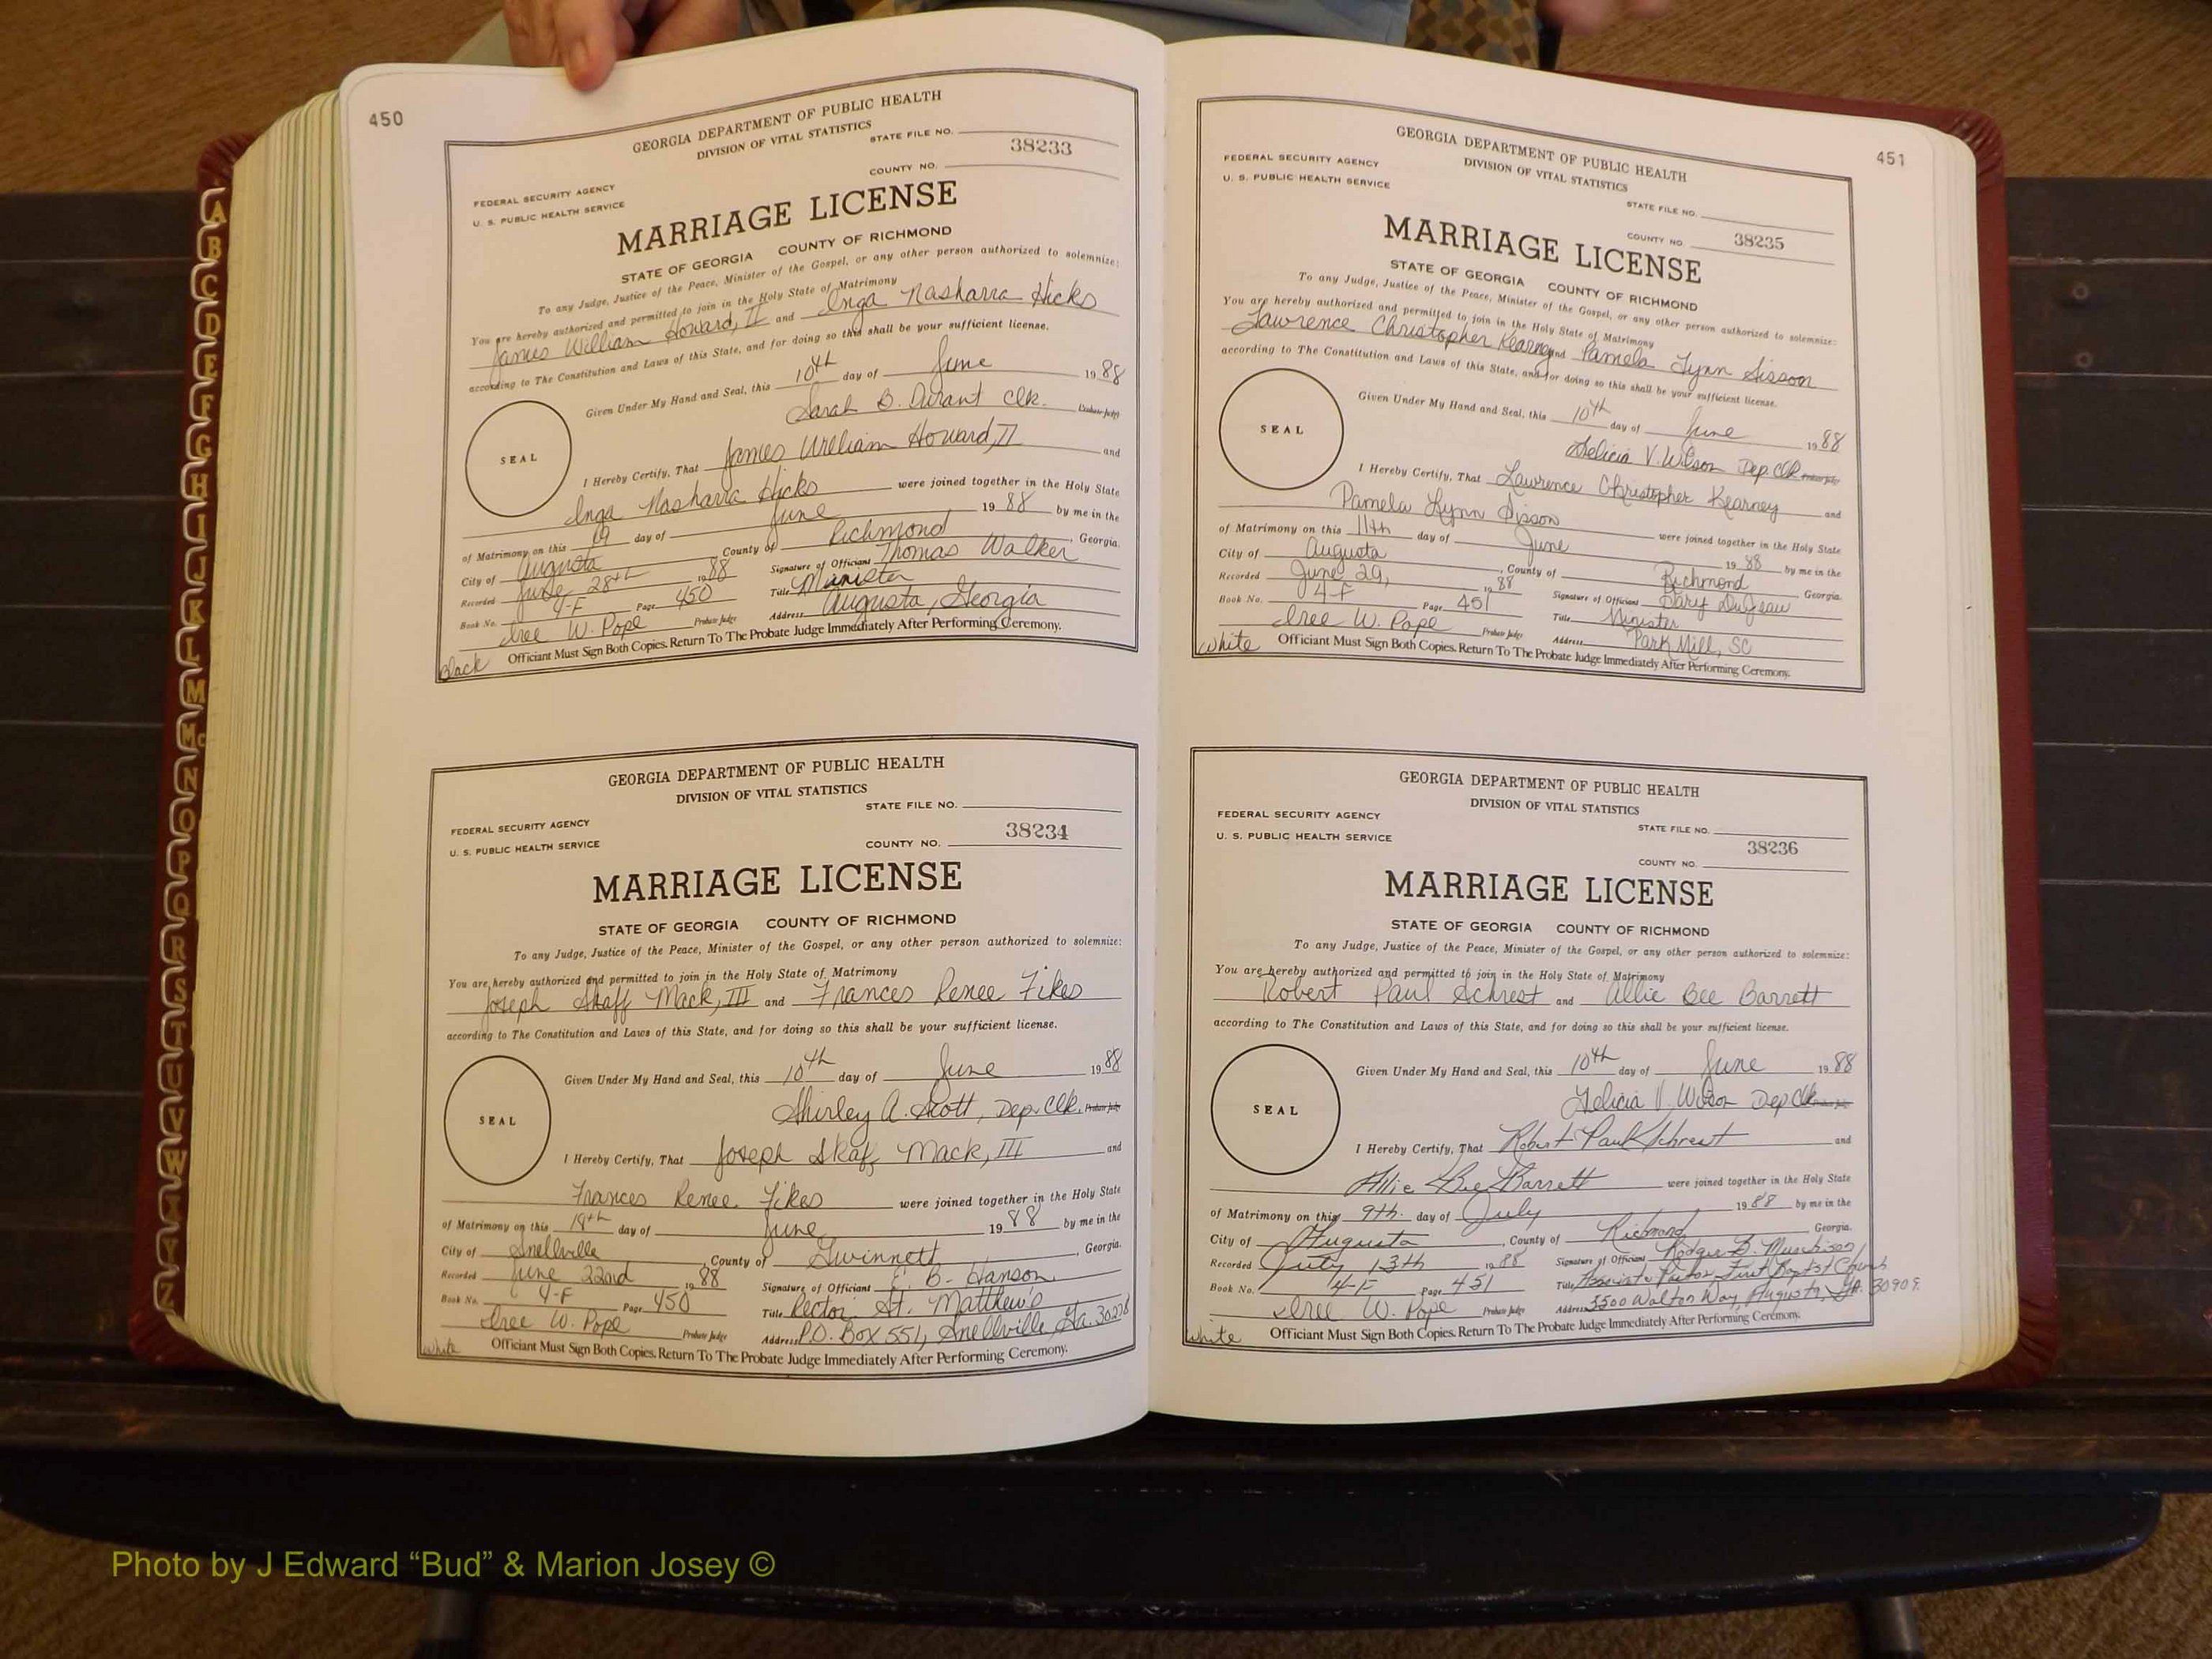 450
GEORGIA DEPARTMENT OF PUBLIC HEALTH
DIVISION OF VITAL STATISTICS
STATE FILE NO.
38233
COUNTY NO.
FEDERAL SECURITY AGENCY
U. S. PUBLIC HEALTH SERVICE
MARRIAGE LICENSE
STATE OF GEORGIA COUNTY OF RICHMOND
To any Judge, Justice of the Peace, Minister of the Gospel, or any other person authorized to solemnize:
You are hereby authorized and permitted to join in the Holy State of Matrimony
James William Howard, II and Inga Nasharra Hicks
according to The Constitution and Laws of this State, and for doing so this shall be your sufficient license.
Given Under My Hand and Seal, this 10th day of June 1988
Sarah B. Durant Clk. Probate Judge
SEAL
I Hereby Certify, That James William Howard, II and
Inga Nasharra Hicks were joined together in the Holy State
of Matrimony on this 19 day of June 1988 by me in the
City of Augusta, County of Richmond, Georgia.
Recorded June 28th 1988 Signature of Official Thomas Walker
Book No. 4-F Page 450 Title Minister
Iree W. Pope Probate Judge Address Augusta, Georgia
Officiant Must Sign Both Copies. Return To The Probate Judge Immediately After Performing Ceremony.
Black
GEORGIA DEPARTMENT OF PUBLIC HEALTH
DIVISION OF VITAL STATISTICS
STATE FILE NO.
FEDERAL SECURITY AGENCY
38234
U. S. PUBLIC HEALTH SERVICE
COUNTY NO.
MARRIAGE LICENSE
STATE OF GEORGIA COUNTY OF RICHMOND
To any Judge, Justice of the Peace, Minister of the Gospel, or any other person authorized to solemnize:
You are hereby authorized and permitted to join in the Holy State of Matrimony
Joseph Skaff Mack, III and Frances Renee Fikes
according to The Constitution and Laws of this State, and for doing so this shall be your sufficient license.
Given Under My Hand and Seal, this 10th day of June 1988
Shirley A. Scott, Dep. Clk. Probate Judge
SEAL
I Hereby Certify, That Joseph Skaf Mack, III and
Frances Renee Fikes were joined together in the Holy State
of Matrimony on this 18th day of June 1988 by me in the
City of Snellville, County of Gwinnett, Georgia.
Recorded June 22nd 1988 Signature of Official E. B. Hanson
Book No. 4-F Page 450 Title Rector St. Matthew's
Iree W. Pope Probate Judge Address P.O. Box 551, Snellville, Ga. 30278
White Officiant Must Sign Both Copies. Return To The Probate Judge Immediately After Performing Ceremony.
451
GEORGIA DEPARTMENT OF PUBLIC HEALTH
DIVISION OF VITAL STATISTICS
FEDERAL SECURITY AGENCY
U. S. PUBLIC HEALTH SERVICE
STATE FILE NO.
COUNTY NO. 38235
MARRIAGE LICENSE
STATE OF GEORGIA COUNTY OF RICHMOND
To any Judge, Justice of the Peace, Minister of the Gospel, or any other person authorized to solemnize:
You are hereby authorized and permitted to join in the Holy State of Matrimony
Lawrence Christopher Kearney and Pamela Lynn Sisson
according to The Constitution and Laws of this State, and for doing so this shall be your sufficient license.
Given Under My Hand and Seal, this 10th day of June 1988
Felicia V. Wilson Dep Clk Probate Judge
SEAL
I Hereby Certify, That Lawrence Christopher Kearney and
Pamela Lynn Sisson were joined together in the Holy State
of Matrimony on this 11th day of June 1988 by me in the
City of Augusta, County of Richmond Georgia.
Recorded June 29, 1988 Signature of Official Gary
Book No. 4-F Page 451 Title Minister
Iree W. Pope Probate Judge Address Park Mill, SC
White Officiant Must Sign Both Copies. Return To The Probate Judge Immediately After Performing Ceremony.
GEORGIA DEPARTMENT OF PUBLIC HEALTH
DIVISION OF VITAL STATISTICS
FEDERAL SECURITY AGENCY
STATE FILE NO.
U. S. PUBLIC HEALTH SERVICE
38236
COUNTY NO.
MARRIAGE LICENSE
STATE OF GEORGIA COUNTY OF RICHMOND
To any Judge, Justice of the Peace, Minister of the Gospel, or any other person authorized to solemnize:
You are hereby authorized and permitted to join in the Holy State of Matrimony
Robert Paul Schrest and Allie Bee Barrett
according to The Constitution and Laws of this State, and for doing so this shall be your sufficient license.
Given Under My Hand and Seal, this 10th day of June 1988
Felicia V. Wilson Dep Clk Probate Judge
SEAL
I Hereby Certify, That Robert Paul Schrest and
Allie Bee Barrett were joined together in the Holy State
of Matrimony on this 9th. day of July 1988 by me in the
City of Augusta, County of Richmond Georgia.
Recorded July 13th 1988 Signature of Official Rodger B. Murchison
Book No. 4-F Page 451 Title Associate Pastor First Baptist Church
Iree W. Pope Probate Judge Address 3500 Walton Way, Augusta, GA. 30909
White Officiant Must Sign Both Copies. Return To The Probate Judge Immediately After Performing Ceremony.
A
B
C
D
E
F
G
H
I
J
K
L
M
Mc
N
O
P
Q
R
S
T
U
V
W
X
Y
Z
Photo by J Edward “Bud” & Marion Josey ©